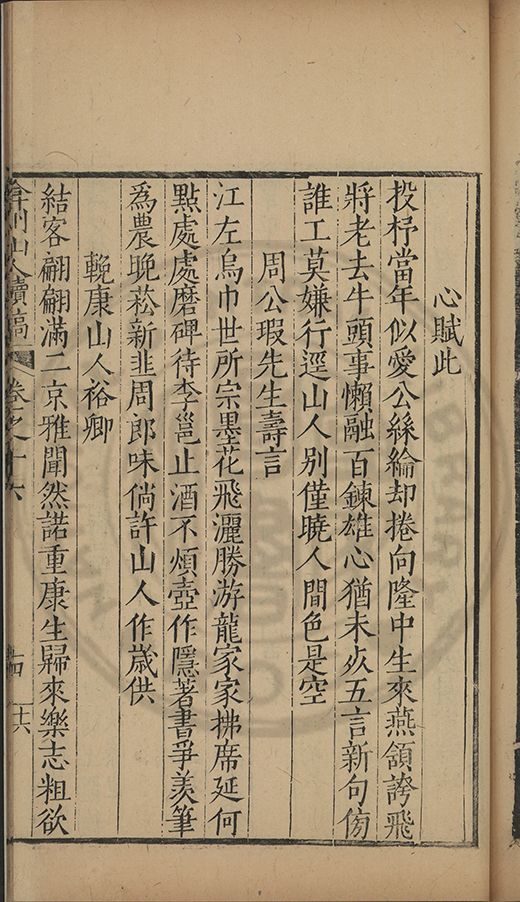 心賦此
投杼當年似愛公絲綸却捲向隆中生來燕頷誇飛
將老去牛頭事懶融百鍊雄心猶未灰五言新句傍
誰工莫嫌行逕山人別僅曉人間色是空
周公瑕先生壽言
江左烏巾世所宗墨花飛灑勝游龍家家拂席延何
點處處磨碑待李邕止酒不煩壺作隱著書爭羨筆
爲農晚菘新韭周郎味倘許山人作歲供
輓康山人裕卿
結客翩翩滿二京雅聞然諾重康生歸來樂志粗欲
弇州山人續稿 卷之十六